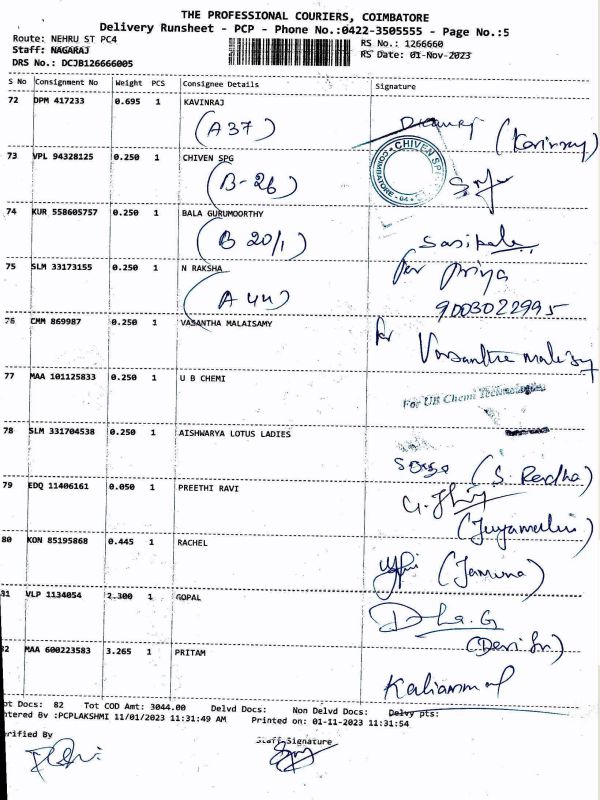 THE PROFESSIONAL COURIERS, COIMBATORE
Delivery Runsheet - PCP - Phone No.:0422-3505555 - Page No.:5
Route: NEHRU ST PC4
RS No.: 1266660
Staff: NAGARAJ
RS Date: 01-Nov-2023
DRS No.: DCJB126666005
S No Consignment No Weight PCS Consignee Details Signature
72 DPM 417233 0.695 1 KAVINRAJ
(A 37)
(Kavinraj)
73 VPL 94328125 0.250 1 CHIVEN SPG
CHIVEN SPG
COIMBATORE
(B-26)
74 KUR 558605757 0.250 1 BALA GURUMOORTHY
(B 20/1)
Sasikala
75 SLM 33173155 0.250 1 N RAKSHA
for Priya
(A 44)
9003022995
76 CMM 869987 0.250 1 VASANTHA MALAISAMY
for
77 MAA 101125833 0.250 1 U B CHEMI
For UB Chemi Technologies
78 SLM 331704538 0.250 1 AISHWARYA LOTUS LADIES
(S. Readha)
79 EDQ 11406161 0.050 1 PREETHI RAVI
80 KON 85195868 0.445 1 RACHEL
(Jamuna)
81 VLP 1134054 2.300 1 GOPAL
82 MAA 600223583 3.265 1 PRITAM
ot Docs: 82 Tot COD Amt: 3044.00 Delvd Docs: Non Delvd Docs: Delvy pts:
ntered By :PCPLAKSHMI 11/01/2023 11:31:49 AM Printed on: 01-11-2023 11:31:54
erified By
Staff Signature